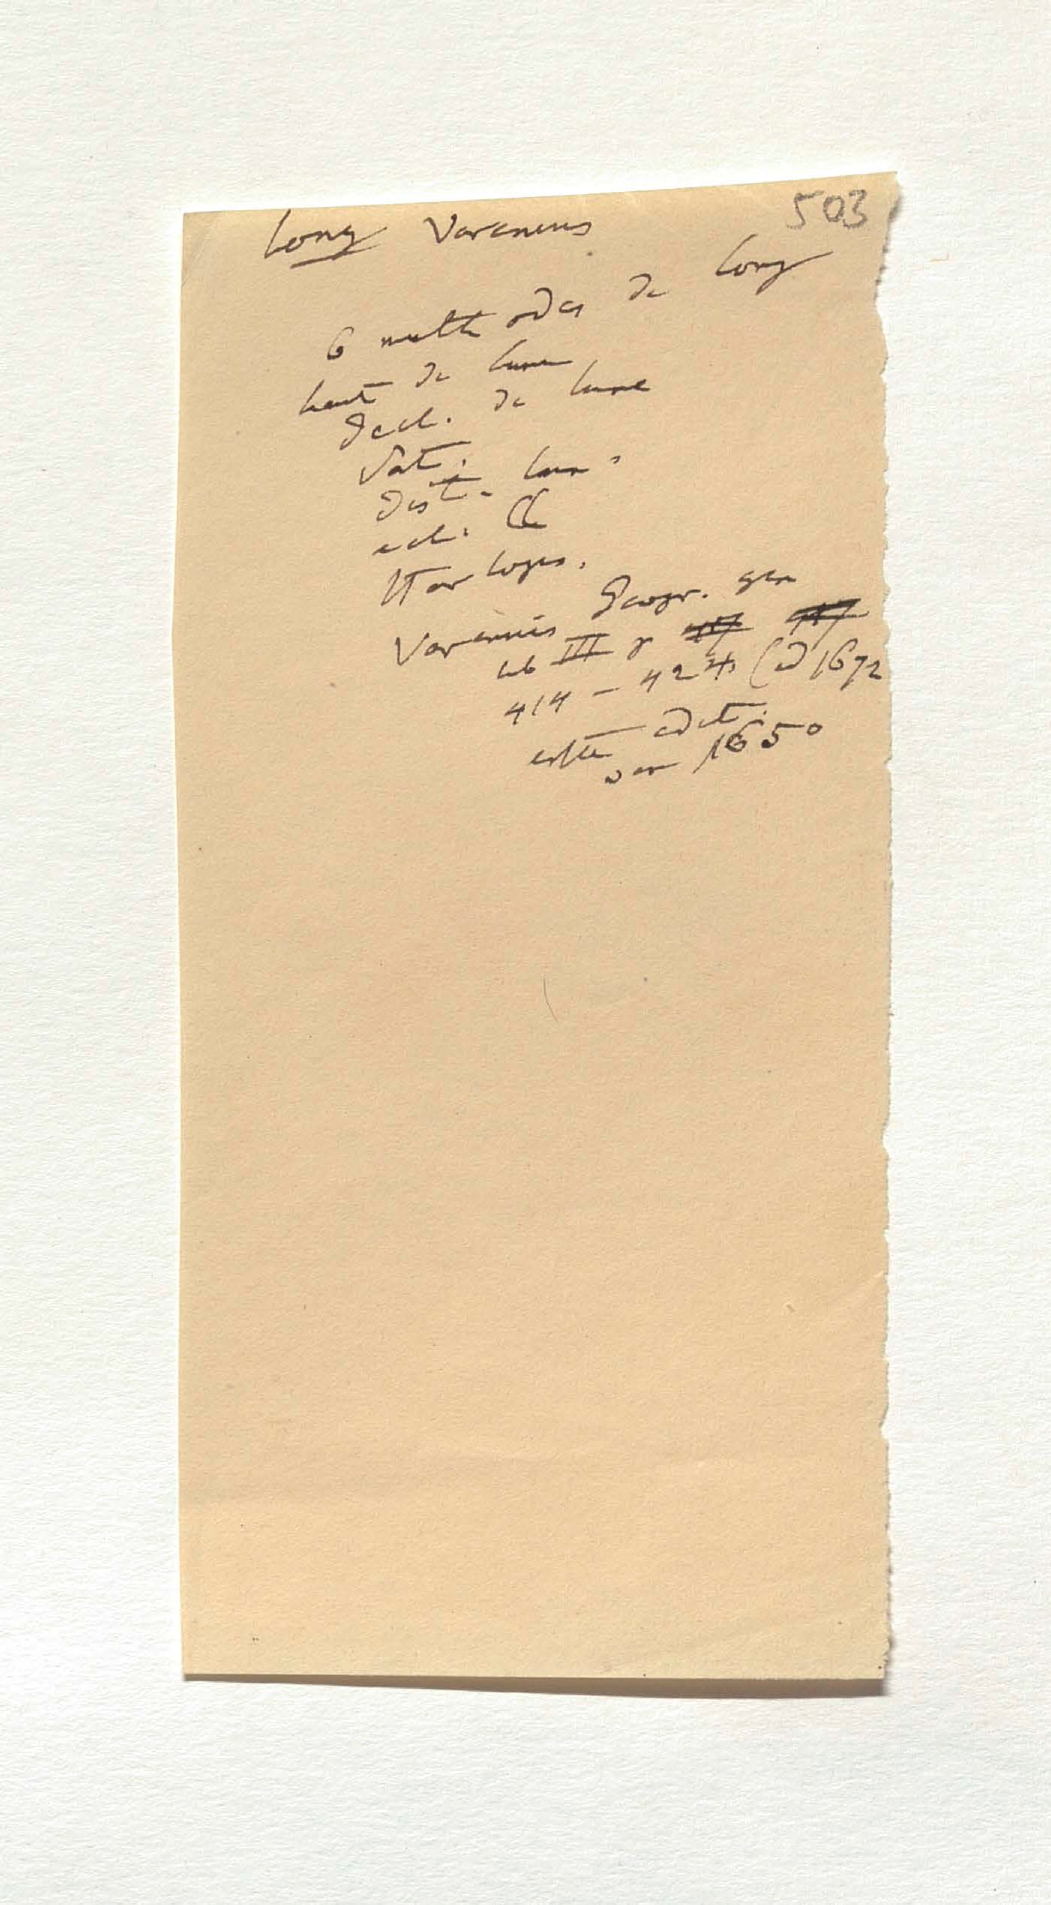 503
Long Varenius
6 methodes de long
haut de lune
decl. de lune
Sat.
dist. lun.
ecl. ☾
Horloges.
Varenius Geogr. gen
lib III p
414 – 424 (ed 1672
erste edit.
von 1650